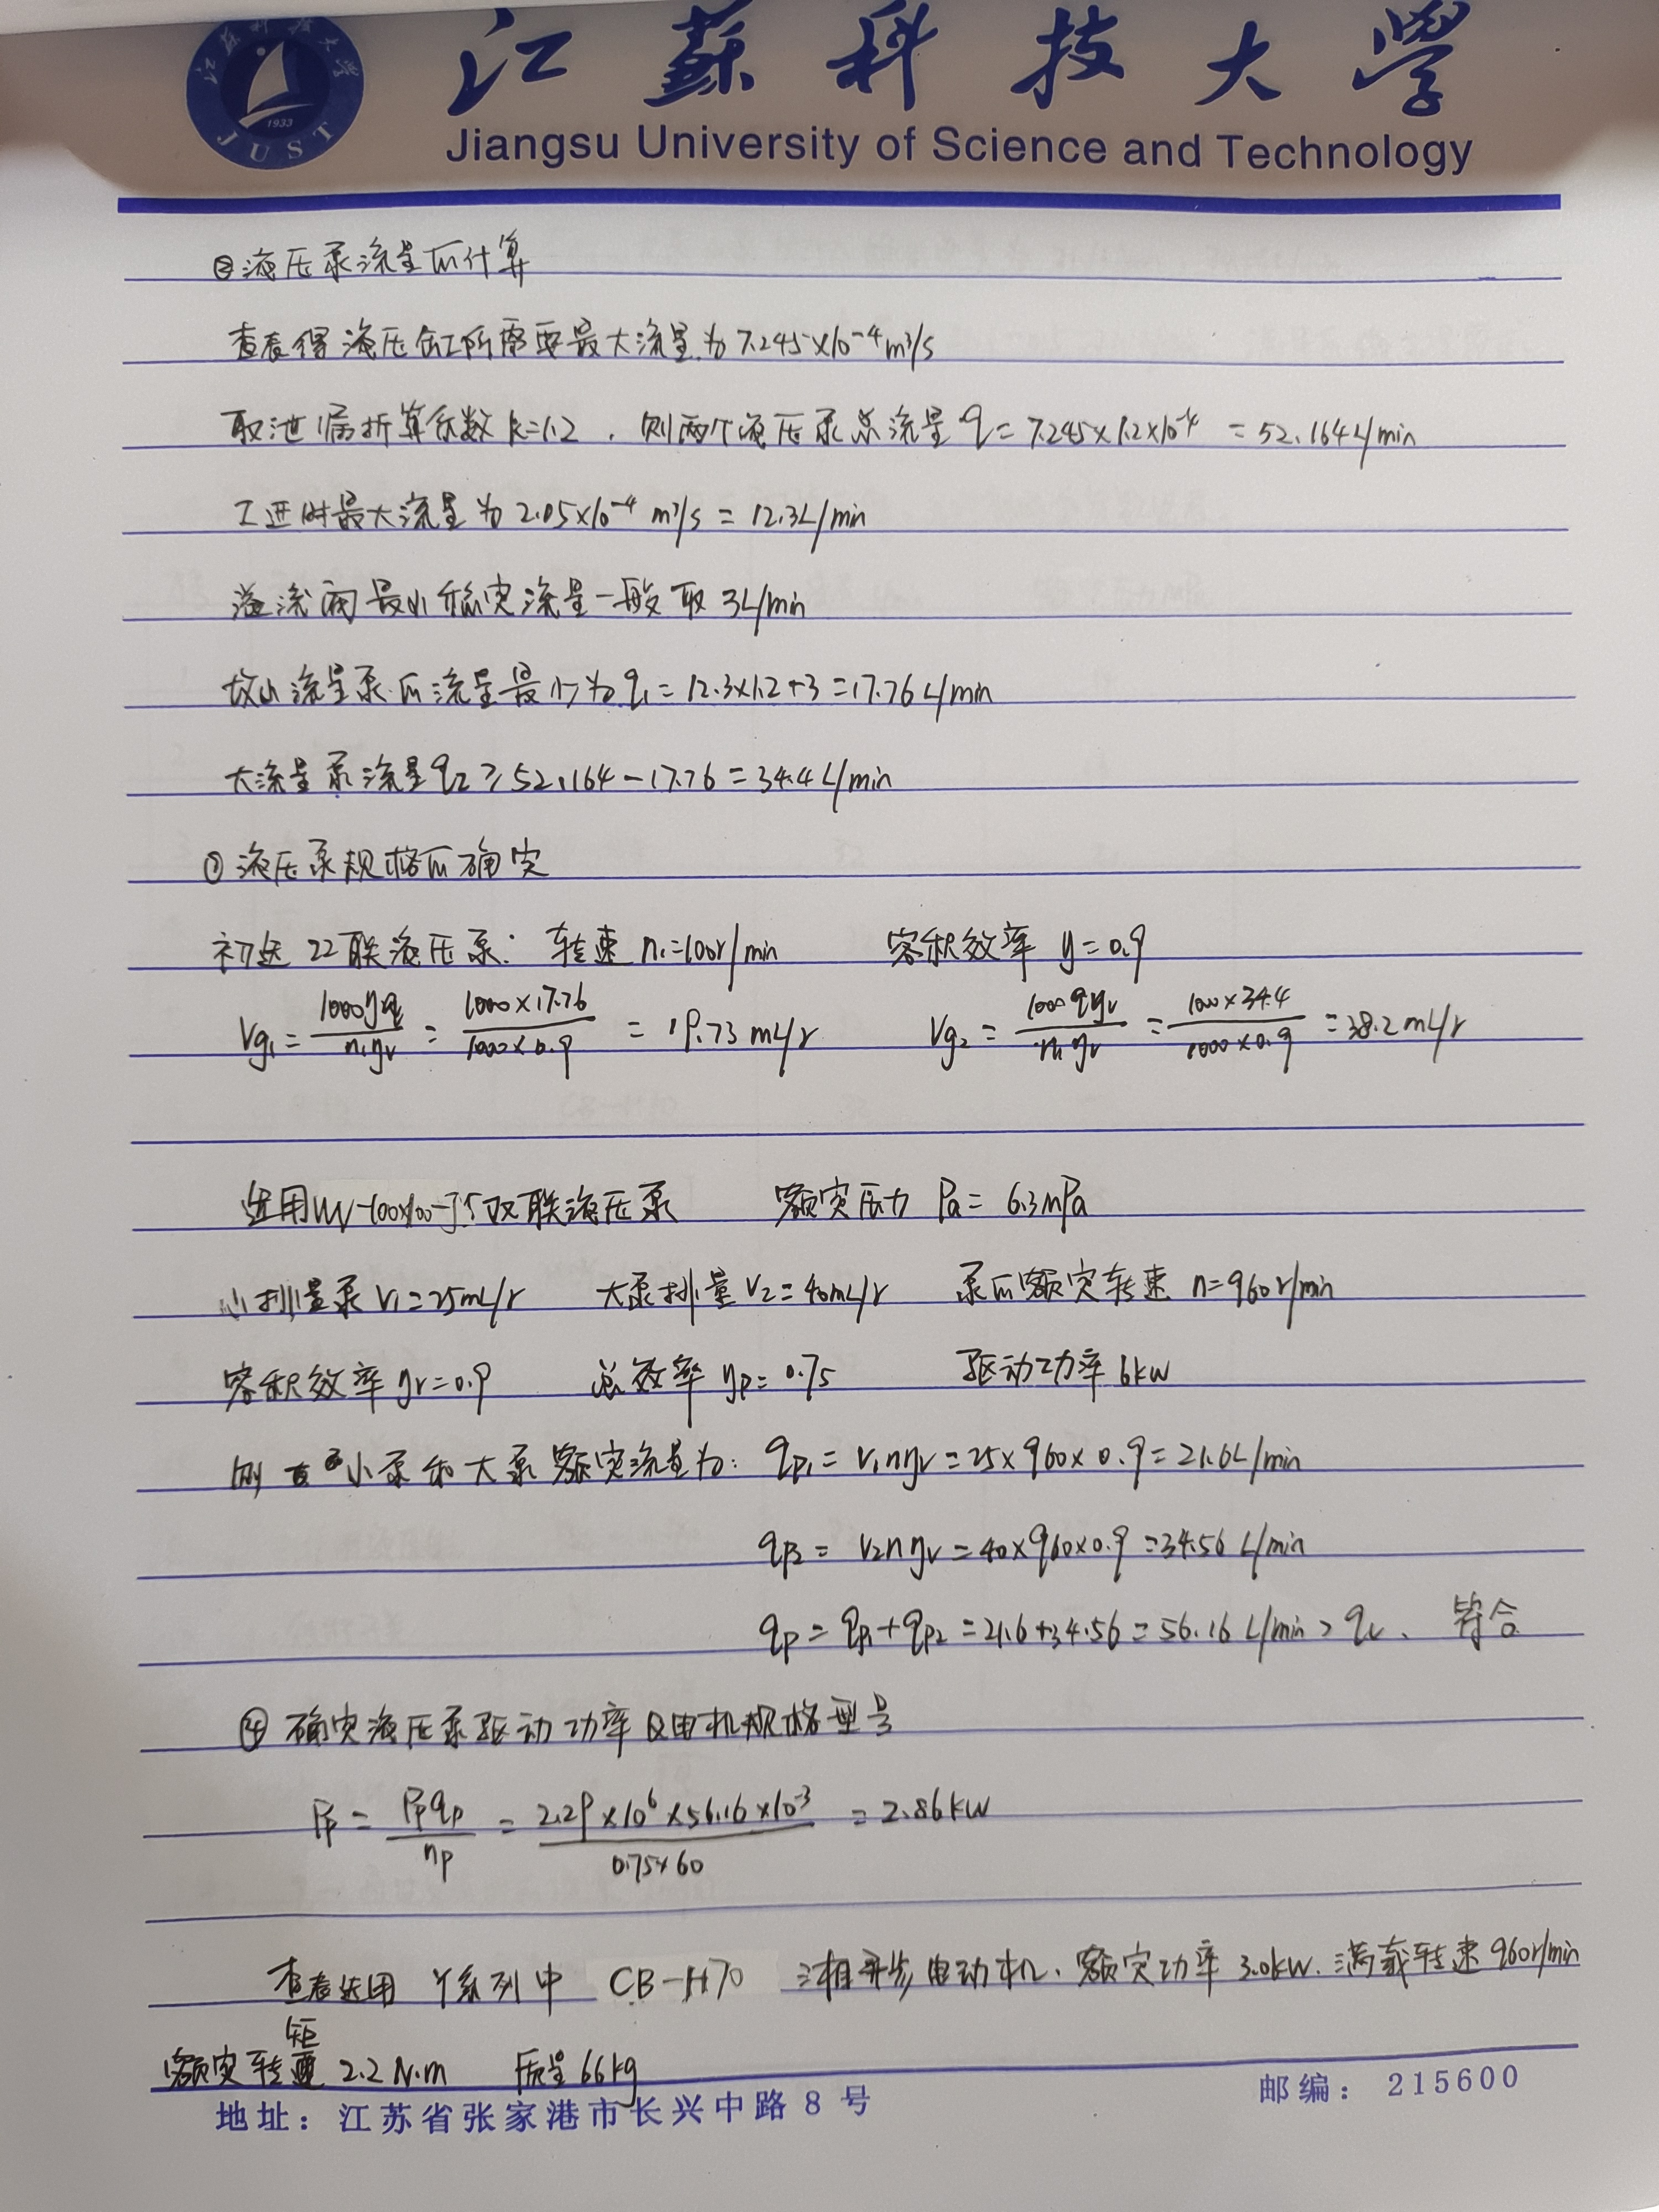 江苏科技大学
1933
JUST
江蘇科技大学
Jiangsu University of Science and Technology
②液压泵流量的计算
查表得液压缸所需要最大流量为 7.245×10⁻⁴m³/s
取泄漏折算系数 k=1.2，则两个液压泵总流量 q = 7.245×1.2×10⁻⁴ = 52.164L/min
工进时最大流量为 2.05×10⁻⁴ m³/s = 12.3L/min
溢流阀最小稳定流量一般取 3L/min
故小流量泵的流量最小为 q₁ = 12.3×1.2+3 = 17.76 L/min
大流量泵流量 q₂ ≥ 52.164 − 17.76 = 34.4 L/min
③液压泵规格的确定
初选 双联液压泵: 转速 n₁=1000r/min 容积效率 y = 0.9
Vg₁ = 1000yq/n₁yv = 1000×17.76/1000×0.9 = 19.73 mL/r Vg₂ = 1000qyv/n₁yv = 1000×34.4/1000×0.9 = 38.2 mL/r
选用 双联液压泵 额定压力 Pa = 6.3mPa
小排量泵 V₁=25mL/r 大泵排量 V₂=40mL/r 泵的额定转速 n=960r/min
容积效率 yv=0.9 总效率 yp=0.75 驱动功率 6kW
则 小泵和大泵额定流量为: qp₁ = V₁nyv = 25×960×0.9 = 21.6L/min
qp₂ = V₂nyv = 40×960×0.9 = 34.56 L/min
qp = qp₁+qp₂ = 21.6+34.56 = 56.16 L/min > qv、符合
④ 确定液压泵驱动功率及电机规格型号
Pp = Ppqp/np = 2.29×10⁶×56.16×10⁻³/0.75×60 = 2.86kW
查表选用 Y系列中 CB-H70 三相异步电动机、额定功率 3.0kW、满载转速 960r/min
矩
额定转 2.2 N.m 质量 66kg
地址: 江苏省张家港市长兴中路 8 号
邮编: 215600